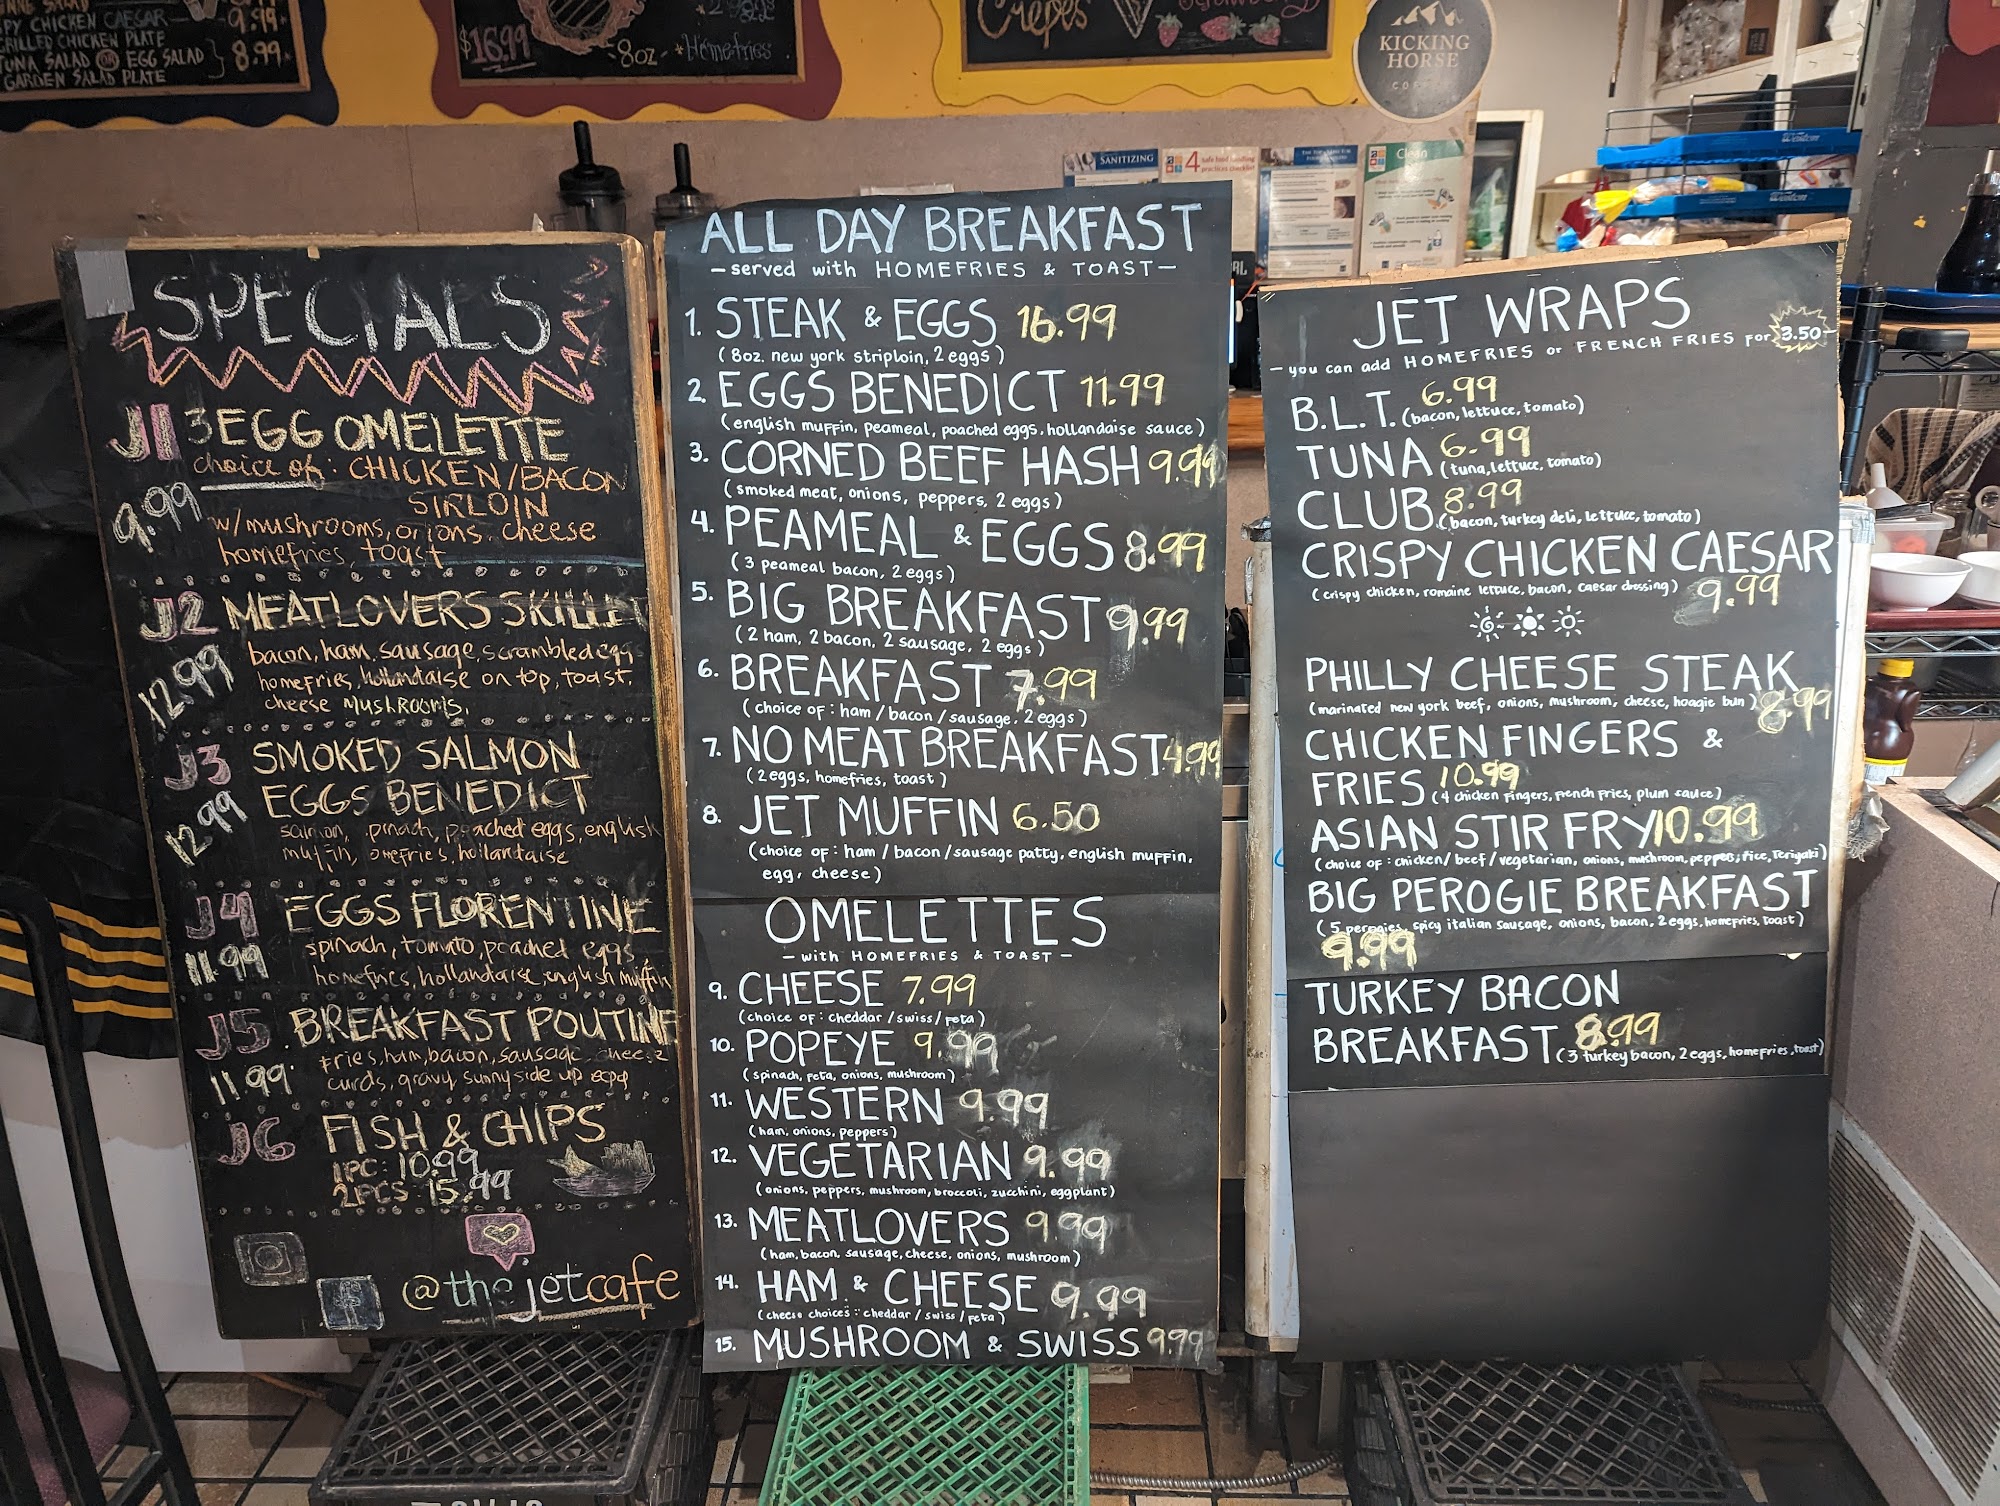 PY CHICKEN CAESAR - 9.99
GRILLED CHICKEN PLATE
TUNA SALAD OR EGG SALAD
GARDEN SALAD PLATE } 8.99
$16.99
8oz - *Homefries
Crepes
KICKING
HORSE
COFFEE
SANITIZING
4 safe food handling
practices checklist
Clean
SPECIALS
J1 3 EGG OMELETTE
choice of: CHICKEN/BACON
SIRLOIN
9.99
w/mushrooms, onions, cheese
homefries, toast
J2 MEATLOVERS SKILLET
12.99
bacon, ham, sausage, scrambled egg
homefries, hollandaise on top, toast,
cheese MUSHROOMS,
J3 SMOKED SALMON
EGGS BENEDICT
12.99
salmon, pinach, poached eggs, english
muffin, omefries, hollandaise
J4 EGGS FLORENTINE
11.99
spinach, tomato, poached eggs
homefries, hollandaise, english muffin
J5 BREAKFAST POUTINE
11.99
fries, ham, bacon, sausage, cheese
curds, gravy sunny side up egg
J6 FISH & CHIPS
1PC: 10.99
2PCS 15.99
@thejetcafe
ALL DAY BREAKFAST
- served with HOMEFRIES & TOAST -
1. STEAK & EGGS 16.99
(8oz. new york striploin, 2 eggs)
2. EGGS BENEDICT 11.99
(english muffin, peameal, poached eggs, hollandaise sauce)
3. CORNED BEEF HASH 9.99
(smoked meat, onions, peppers, 2 eggs)
4. PEAMEAL & EGGS 8.99
(3 peameal bacon, 2 eggs)
5. BIG BREAKFAST 9.99
(2 ham, 2 bacon, 2 sausage, 2 eggs)
6. BREAKFAST 7.99
(choice of: ham / bacon / sausage, 2 eggs)
7. NO MEAT BREAKFAST 4.99
(2 eggs, homefries, toast)
8. JET MUFFIN 6.50
(choice of: ham / bacon / sausage patty, english muffin,
egg, cheese)
OMELETTES
- with HOMEFRIES & TOAST -
9. CHEESE 7.99
(choice of: cheddar / swiss / feta)
10. POPEYE 9.99
(spinach, feta, onions, mushroom)
11. WESTERN 9.99
(ham, onions, peppers)
12. VEGETARIAN 9.99
(onions, peppers, mushroom, broccoli, zucchini, eggplant)
13. MEATLOVERS 9.99
(ham, bacon, sausage, cheese, onions, mushroom)
14. HAM & CHEESE 9.99
(cheese choices: cheddar / swiss / feta)
15. MUSHROOM & SWISS 9.99
JET WRAPS
- you can add HOMEFRIES or FRENCH FRIES for 3.50 -
B.L.T. 6.99 (bacon, lettuce, tomato)
TUNA 6.99 (tuna, lettuce, tomato)
CLUB 8.99 (bacon, turkey deli, lettuce, tomato)
CRISPY CHICKEN CAESAR
(crispy chicken, romaine lettuce, bacon, caesar dressing) 9.99
PHILLY CHEESE STEAK
(marinated new york beef, onions, mushroom, cheese, hoagie bun) 8.99
CHICKEN FINGERS &
FRIES 10.99 (4 chicken fingers, french fries, plum sauce)
ASIAN STIR FRY 10.99
(choice of: chicken / beef / vegetarian, onions, mushroom, pepper, rice, Teriyaki)
BIG PEROGIE BREAKFAST
(5 perogies, spicy italian sausage, onions, bacon, 2 eggs, homefries, toast)
9.99
TURKEY BACON
BREAKFAST 8.99 (3 turkey bacon, 2 eggs, homefries, toast)